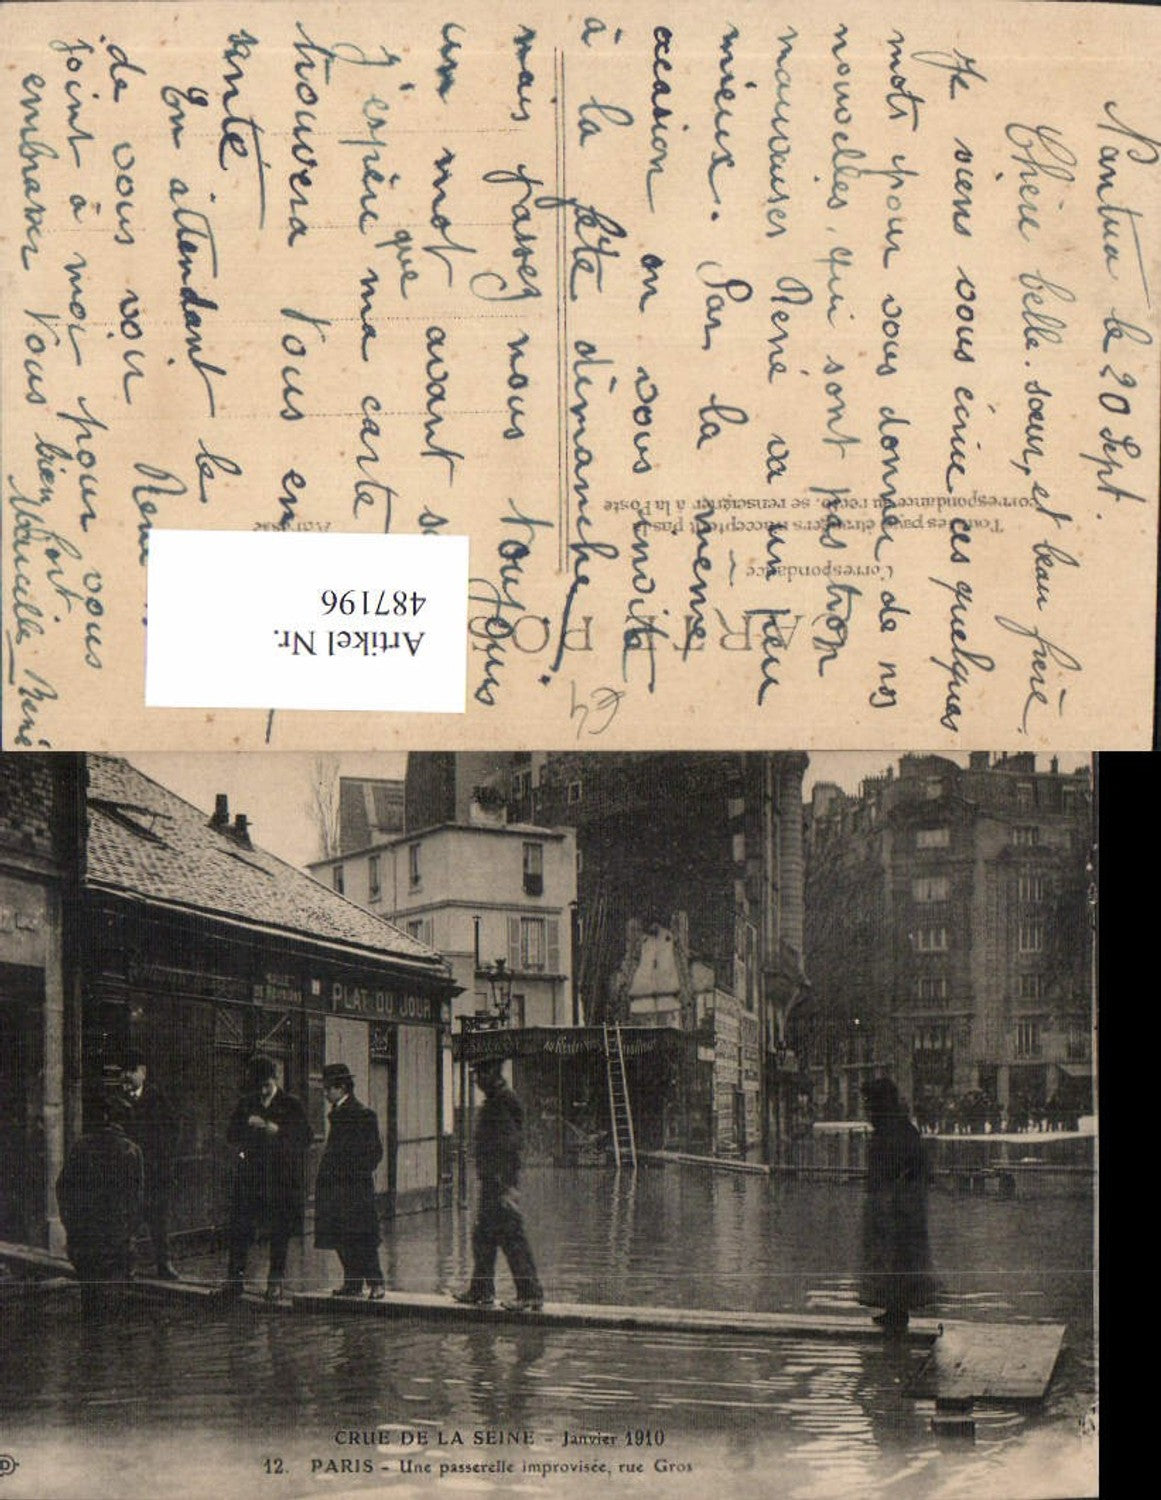 Nantua le 20 Sept.
Chère belle-sœur, et beau frère.
Je viens vous écrire ces quelques
mots pour vous donner de nos
nouvelles, qui sont pas trop
mauvaises René va un peu
mieux. Par la même
occasion on vous invite
à la fête dimanche.
mais passez nous toujours
un mot avant
J'espère que ma carte
trouvera Vous en
santé
En attendant le
de vous voir
joint à moi pour vous
embrasser Vous bien fort.
René
CARTE POSTALE
Correspondance
Tous les pays étrangers n'acceptent pas la
correspondance au recto, se renseigner à la Poste
Adresse
Artikel Nr.
487196
SALLE
DE RÉUNIONS
PLAT DU JOUR
CRUE DE LA SEINE - Janvier 1910
12. PARIS - Une passerelle improvisée, rue Gros